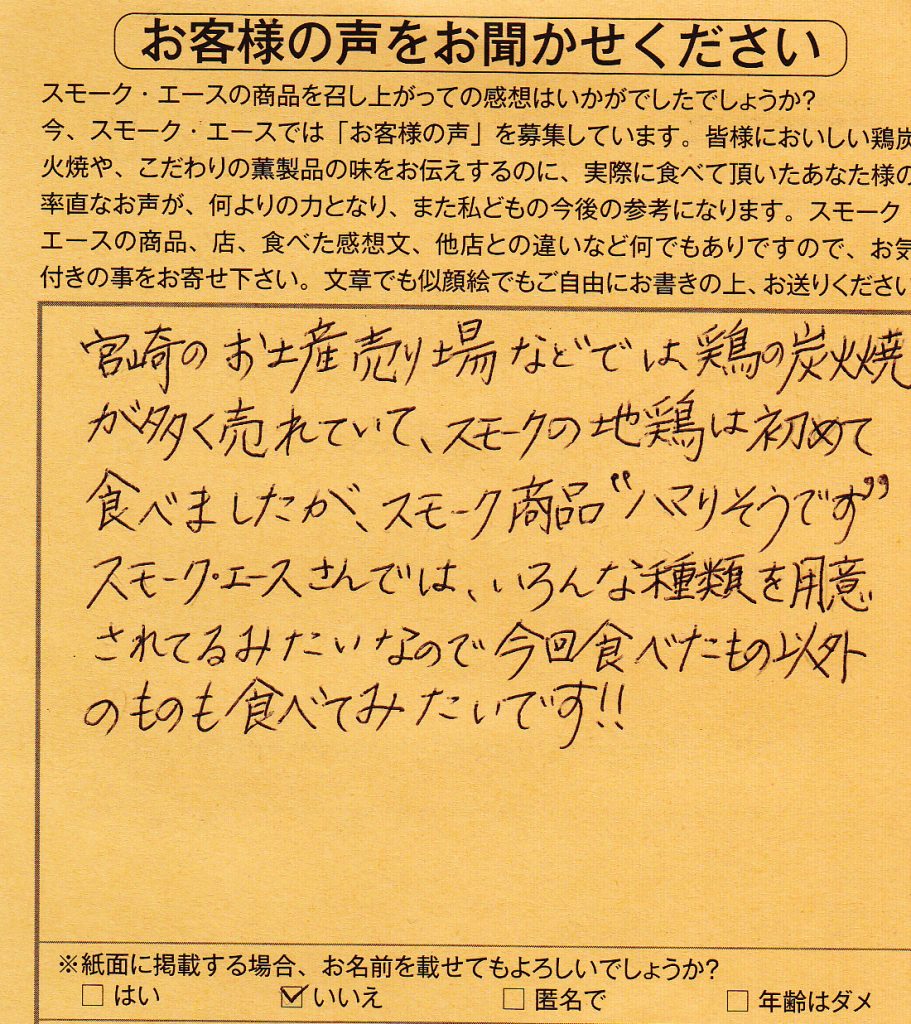 お客様の声をお聞かせください
スモーク・エースの商品を召し上がっての感想はいかがでしたでしょうか?
今、スモーク・エースでは「お客様の声」を募集しています。皆様においしい鶏炭
火焼や、こだわりの薫製品の味をお伝えするのに、実際に食べて頂いたあなた様の
率直なお声が、何よりの力となり、また私どもの今後の参考になります。スモーク
エースの商品、店、食べた感想文、他店との違いなど何でもありですので、お気
付きの事をお寄せ下さい。文章でも似顔絵でもご自由にお書きの上、お送りください
宮崎のお土産売り場などでは鶏の炭火焼
が多く売れていて、スモークの地鶏は初めて
食べましたが、スモーク商品“ハマりそうです”
スモーク・エースさんでは、いろんな種類を用意
されてるみたいなので今回食べたもの以外
のものも食べてみたいです!!
※紙面に掲載する場合、お名前を載せてもよろしいでしょうか?
□ はい ☑ いいえ □ 匿名で □ 年齢はダメ